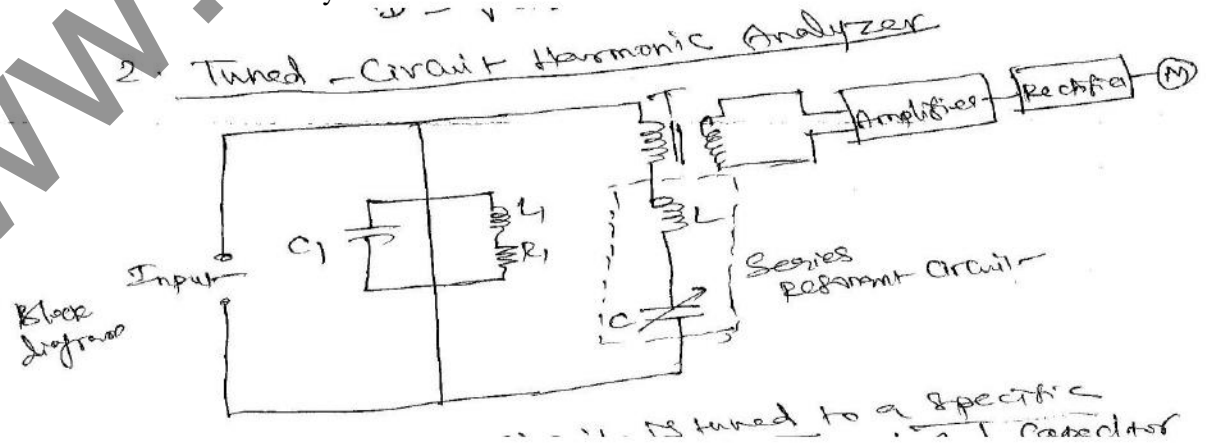 2. Tuned-Circuit Harmonic Analyzer
T
Amplifier
Rectifier
M
L1
C1
R1
L
Input
Series
Resonant Circuit
C
Block
diagram
is tuned to a specific
Capacitor